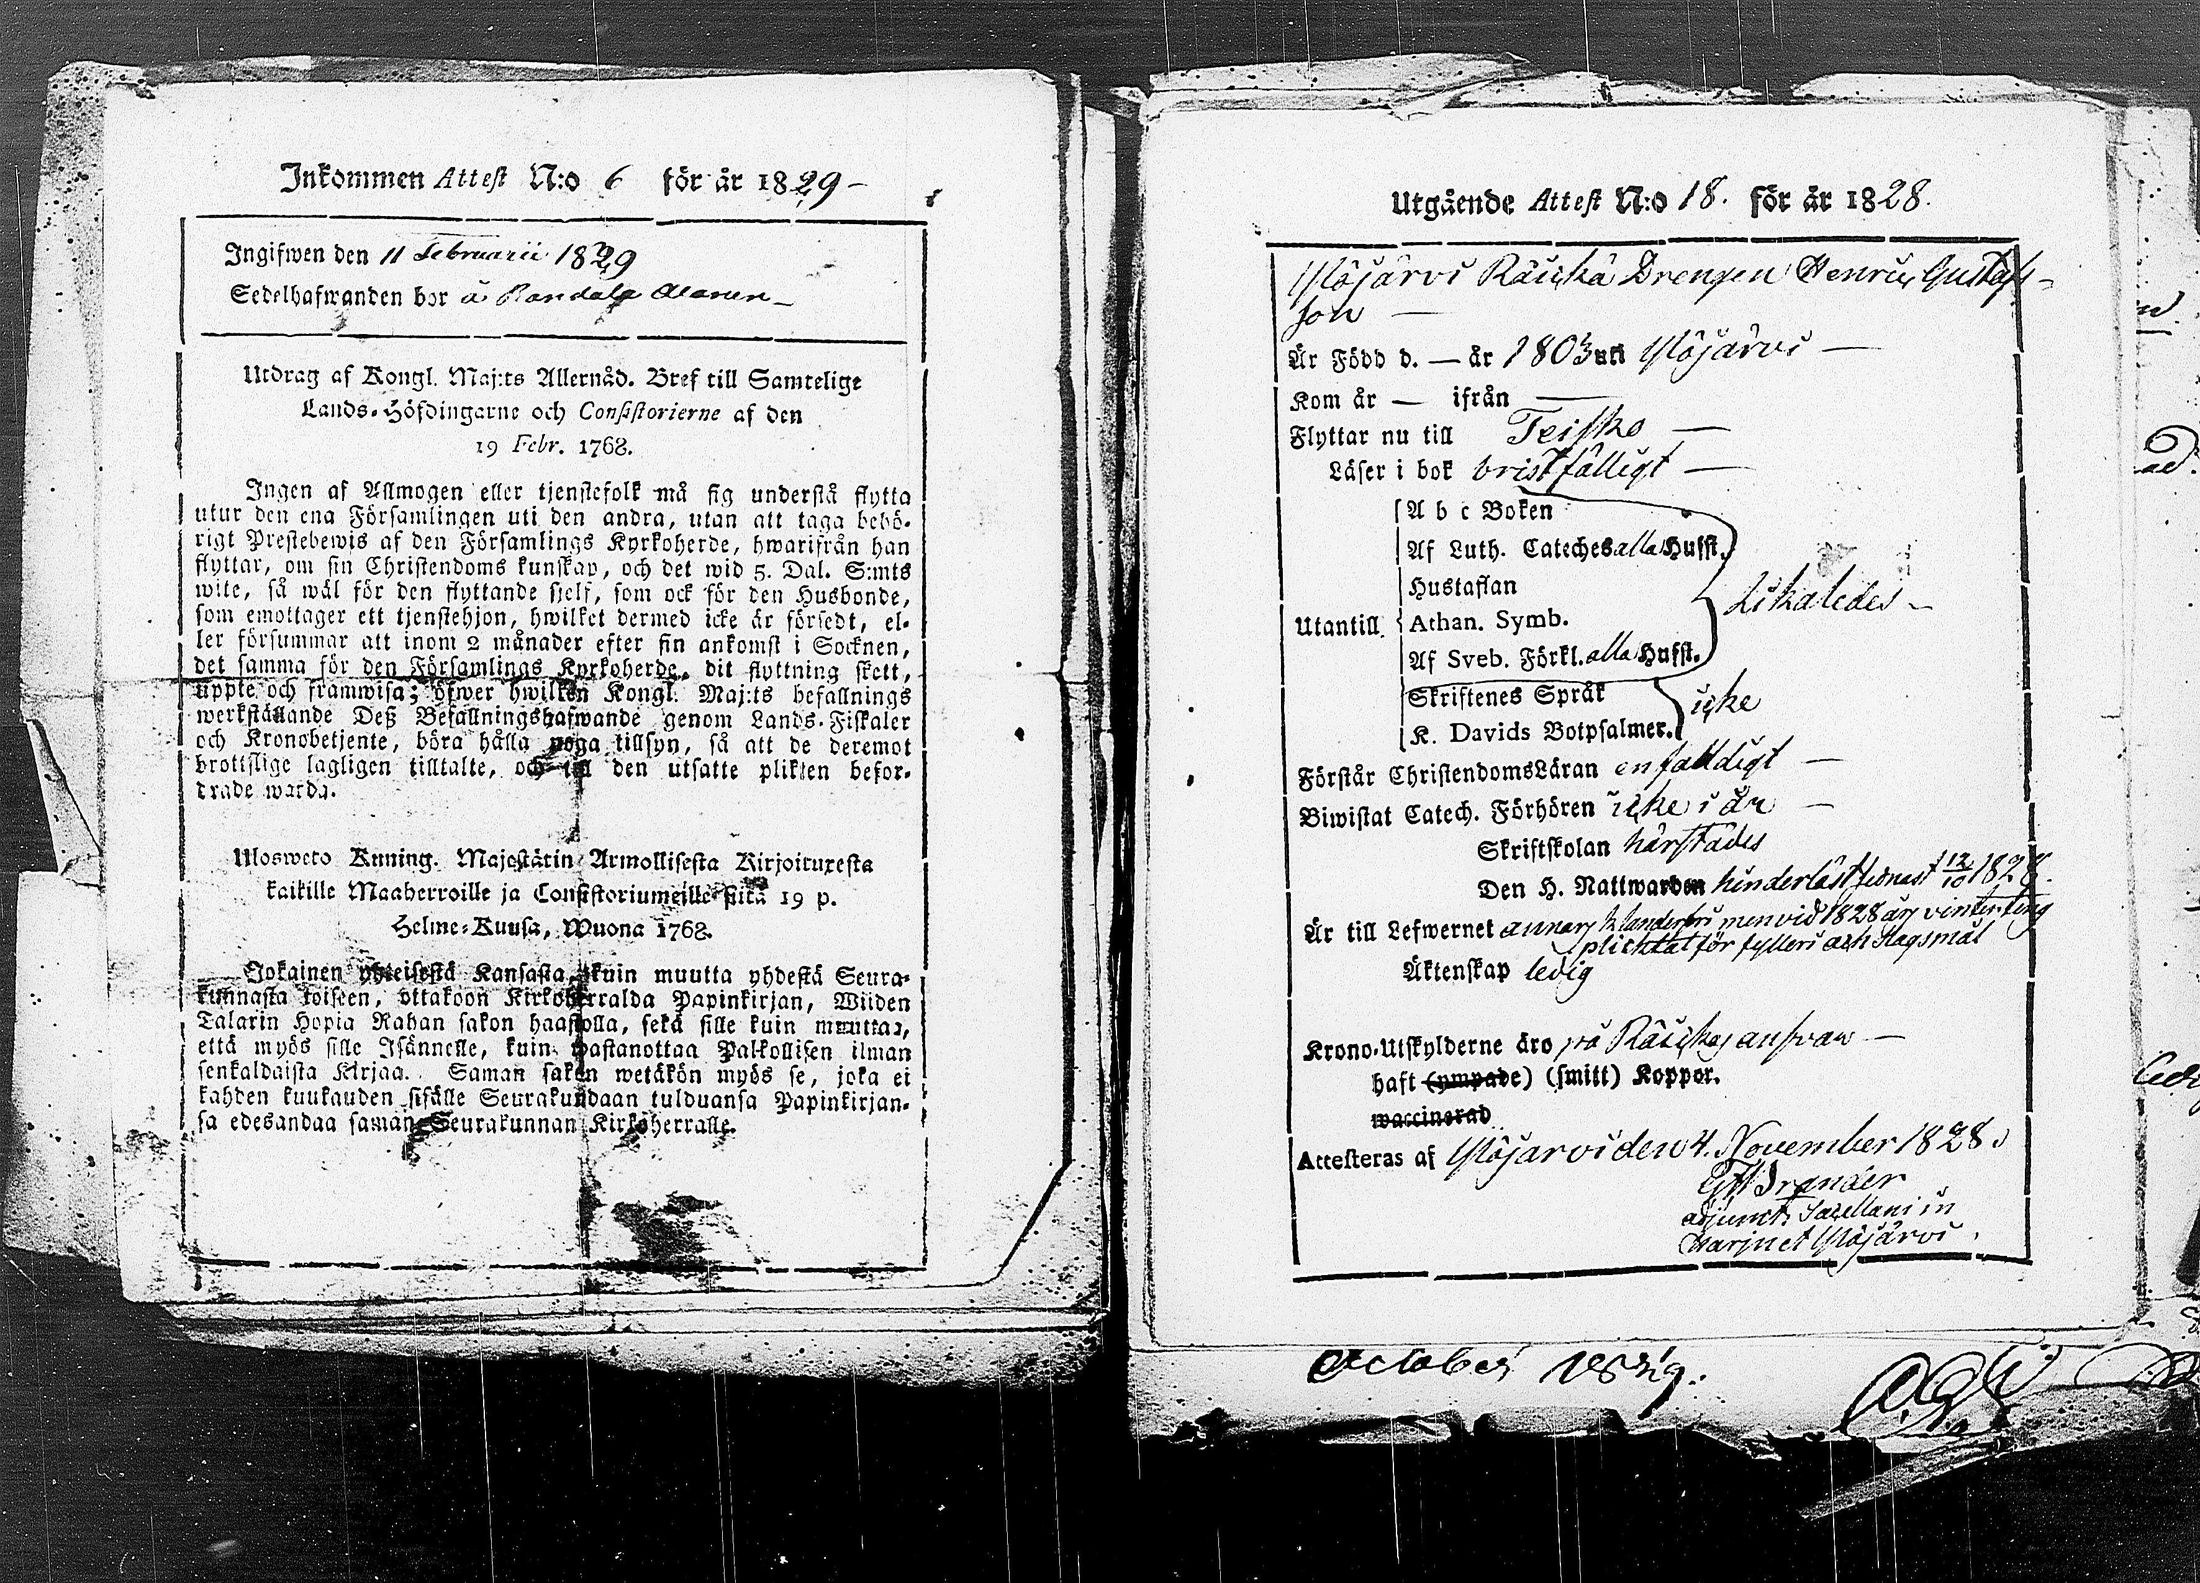 Inkommen Attest N:o 6 för år 1829 –
Ingifwen den 11 Februarii 1829
Sedelhafwanden bor å Randala
Utdrag af Kongl. Maj:ts Allernåd. Bref till Samtelige
Lands-Höfdingarne och Consistorierne af den
19 Febr. 1768.
Ingen af Allmogen eller tjenstefolk må sig understå flytta
utur den ena Församlingen uti den andra, utan att taga behö-
rigt Prestebewis af den Församlings Kyrkoherde, hwarifrån han
flyttar, om sin Christendoms kunskap, och det wid 5. Dal. S:mts
wite, så wäl för den flyttande sjelf, som ock för den Husbonde,
som emottager ett tjenstehjon, hwilket dermed icke är försedt, el-
ler försummar att inom 2 månader efter sin ankomst i Socknen,
det samma för den Församlings Kyrkoherde, dit flyttning skett,
uppte och framwisa; öfwer hwilken Kongl. Maj:ts befallnings
werkställande Deß Befallningshafwande genom Lands-Fiskaler
och Kronobetjente, böra hålla noga tillsyn, så att de deremot
brottslige lagligen tilltalte, och till den utsatte plikten befor-
drade warda.
Ulosweto Kuning. Majestätin Armollisesta Kirjoituxesta
kaikille Maaherroille ja Consistoriumeille siitä 19 p.
Helme-Kuusa, Wuona 1768.
Jokainen yhteisestä Kansasta, kuin muutta yhdestä Seura-
kunnasta toiseen, ottakoon Kirkoherralda Papinkirjan, Wiiden
Talarin Hopia Rahan sakon haastolla, sekä sille kuin muuttaa,
että myös sille Isännelle, kuin wastanottaa Palkollisen ilman
senkaldaista Kirjaa. Saman sakon wetäkön myös se, joka ei
kahden kuukauden sisälle Seurakundaan tulduansa Papinkirjan-
sa edesandaa saman Seurakunnan Kirkoherralle.
Utgående Attest N:o 18. för år 1828.
Ylöjärvi Räickä Drengen Henric Gustafs-
son —
Är Född d. — år 1803 uti Ylöjärvi —
Kom år — ifrån —
Flyttar nu till Teisko —
Läser i bok bristfälligt —
A b c Boken
Af Luth. Cateches alla Hufst.
Hustaflan
Likaledes –
Utantill Athan. Symb.
Af Sveb. Förkl. alla Hufst.
Skriftenes Språk
icke
K. Davids Botpsalmer.
Förstår ChristendomsLäran enfaldigt —
Biwistat Catech. Förhören icke i år —
Skriftskolan härstädes
Den H. Nattwarden hinderlöst sednast 12/10 1828.
Är till Lefwernet annars klanderfri men vid 1828 års vinter ting
plichtat för fylleri och slagsmål
Äktenskap ledig
Krono-Utskylderne äro på Räickes ansvar —
haft (ympade) (smitt) Koppor.
waccinerad
Attesteras af Ylöjärvi den 4. November 1828.
Brander
adjunct. Sacellani in
Harju et Ylöjärvi.
October 1829.